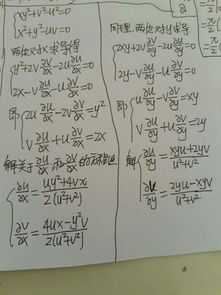 {xy²+v²-u²=0
x²+y²+uv=0
两边对x求导得
{y²+2v∂v/∂x-2u∂u/∂x=0
2x-v∂u/∂x-u∂v/∂x=0
即 {2u∂u/∂x-2v∂v/∂x=y²
v∂u/∂x+u∂v/∂x=2x
解关于∂u/∂x和∂v/∂x的
{∂u/∂x=uy²+4vx/2(u²+v²)
∂v/∂x=4ux-y²v/2(u²+v²)
同理.两边对y求导得
{2xy+2v∂v/∂y-2u∂u/∂y=0
2y-v∂u/∂y-u∂v/∂y=0
即 {u∂u/∂y-v∂v/∂y=xy
v∂u/∂y+u∂v/∂y=2y
解 {∂u/∂y=xyu+2yv/u²+v²
∂u/∂y=2yu-xyv/u²+v²